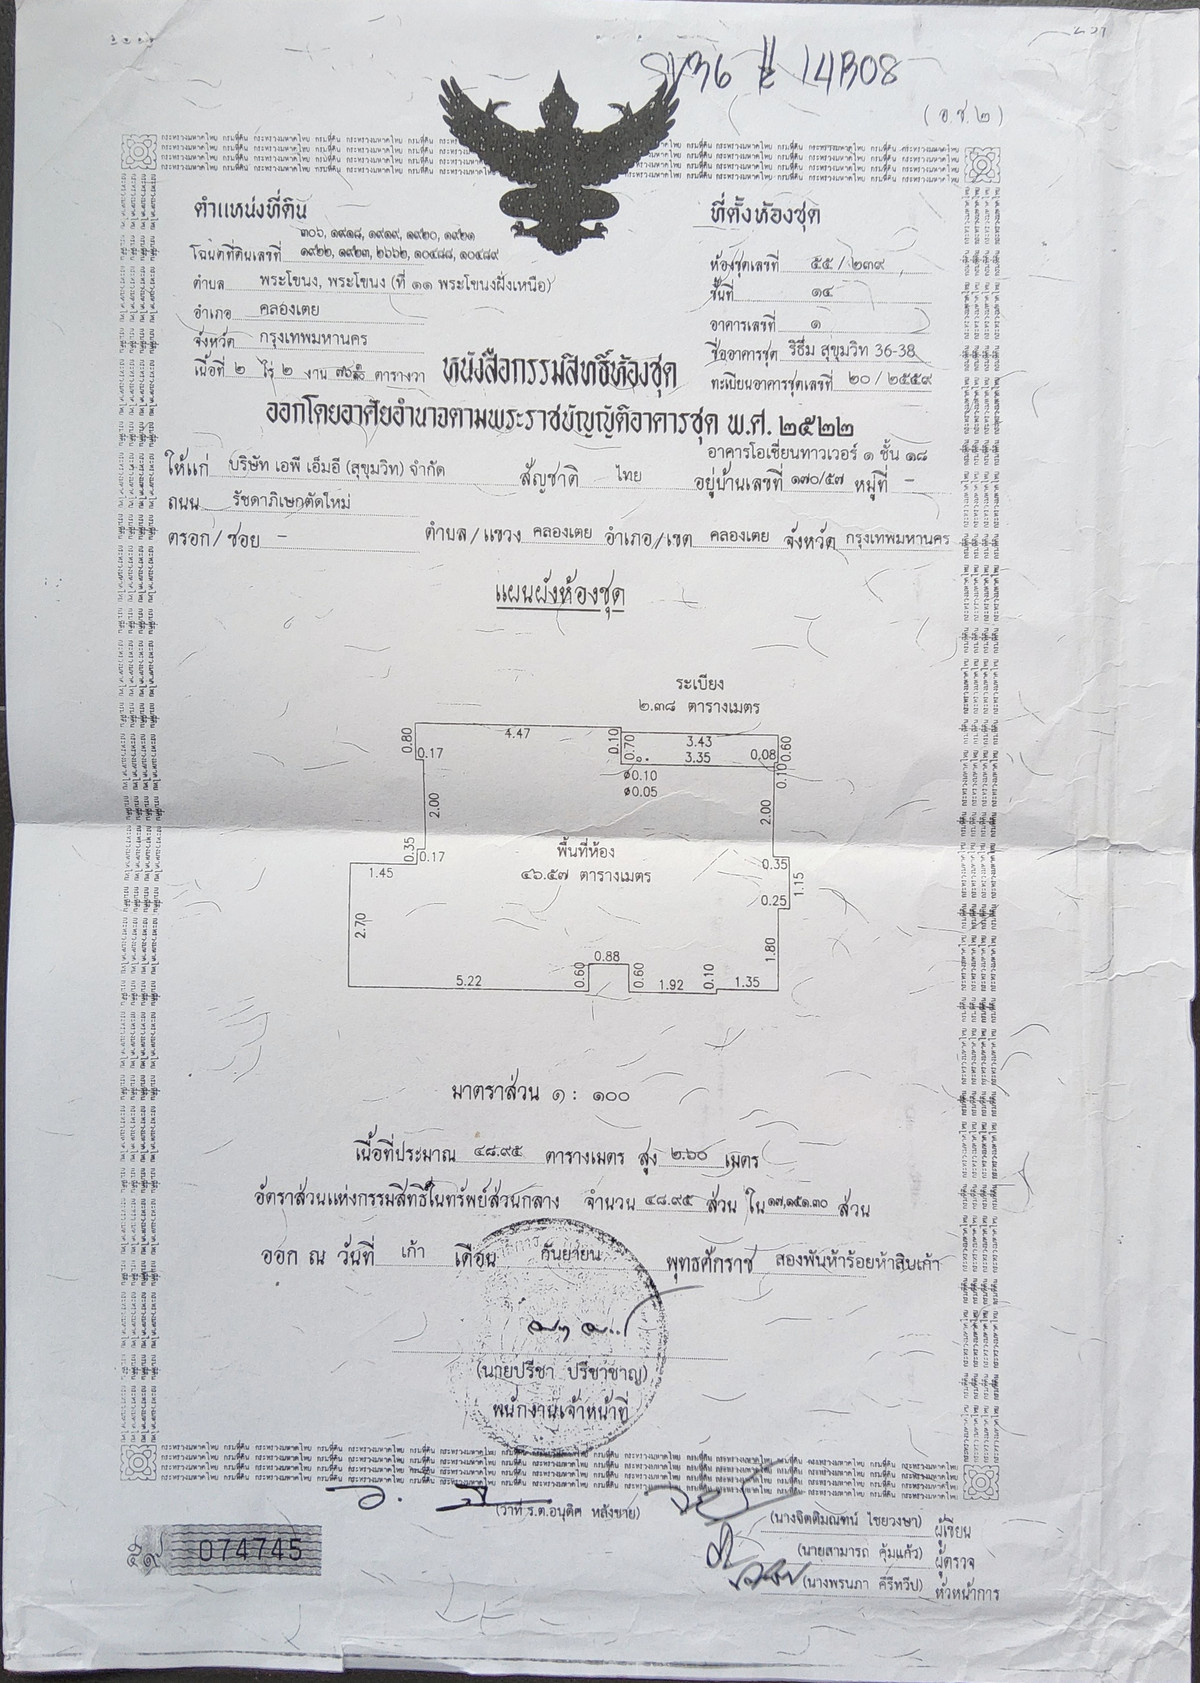 ข36 # 14B08
(อ.ช.๒)
ตำแหน่งที่ดิน
๓๐๖, ๑๙๑๘, ๑๙๑๙, ๑๙๒๐, ๑๙๒๑
โฉนดที่ดินเลขที่ ๑๙๒๒, ๑๙๒๓, ๒๖๖๒, ๑๐๔๘๘, ๑๐๔๘๙
ตำบล พระโขนง, พระโขนง (ที่ ๑๑ พระโขนงฝั่งเหนือ)
อำเภอ คลองเตย
จังหวัด กรุงเทพมหานคร
เนื้อที่ ๒ ไร่ ๒ งาน ตารางวา
ที่ตั้งห้องชุด
ห้องชุดเลขที่ ๕๕ / ๒๓๙
ชั้นที่ ๑๔
อาคารเลขที่ ๑
ชื่ออาคารชุด ริธึ่ม สุขุมวิท 36-38
ทะเบียนอาคารชุดเลขที่ ๒๐ / ๒๕๕๙
หนังสือกรรมสิทธิ์ห้องชุด
ออกโดยอาศัยอำนาจตามพระราชบัญญัติอาคารชุด พ.ศ. ๒๕๒๒
อาคารโอเชี่ยนทาวเวอร์ ๑ ชั้น ๑๘
ให้แก่ บริษัท เอพี เอ็มอี (สุขุมวิท) จำกัด สัญชาติ ไทย อยู่บ้านเลขที่ ๑๗๐/๕๗ หมู่ที่ -
ถนน รัชดาภิเษกตัดใหม่
ตรอก/ซอย - ตำบล/แขวง คลองเตย อำเภอ/เขต คลองเตย จังหวัด กรุงเทพมหานคร
แผนผังห้องชุด
ระเบียง
๒.๓๘ ตารางเมตร
0.80 4.47 0.10 0.70 3.43 0.60
0.17 3.35 0.08
ø0.10 0.10
ø0.05
2.00 2.00
พื้นที่ห้อง
0.35 0.17 0.35
1.45 ๔๖.๕๗ ตารางเมตร 1.15
0.25
2.70 1.80
0.88
5.22 0.60 0.60 1.92 0.10 1.35
มาตราส่วน ๑ : ๑๐๐
เนื้อที่ประมาณ ๔๘.๙๕ ตารางเมตร สูง ๒.๖๐ เมตร
อัตราส่วนแห่งกรรมสิทธิ์ในทรัพย์ส่วนกลาง จำนวน ๔๘.๙๕ ส่วน ใน ๑๗,๑๕๑.๓๐ ส่วน
ออก ณ วันที่ เก้า เดือน กันยายน พุทธศักราช สองพันห้าร้อยห้าสิบเก้า
(นายปรีชา ปรีชาชาญ)
พนักงานเจ้าหน้าที่
(ว่าที่ ร.ต.อนุดิศ หลังชาย)
(นางจิตติมณฑน์ ไชยวงษา) ผู้เขียน
(นายสามารถ คุ้มแก้ว) ผู้ตรวจ
(นางพรนภา คีรีทวีป) หัวหน้าการ
074745